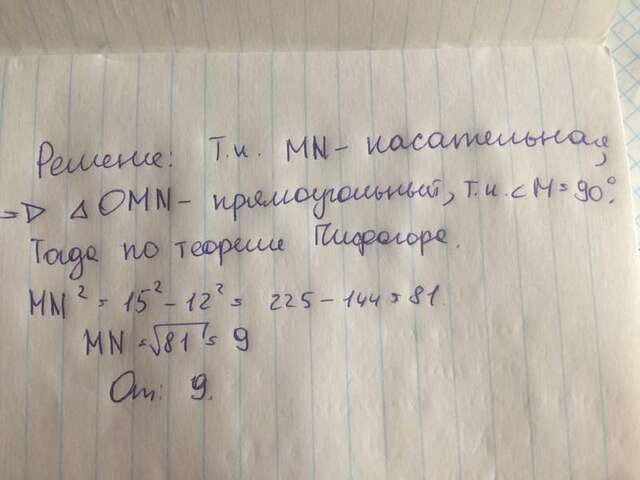 Решение: Т.к. MN - касательная,
=> △OMN - прямоугольный, т.к. <M = 90°.
Тогда по теореме Пифагора.
MN² = 15² - 12² = 225 - 144 = 81.
MN = √81 = 9
От: 9.